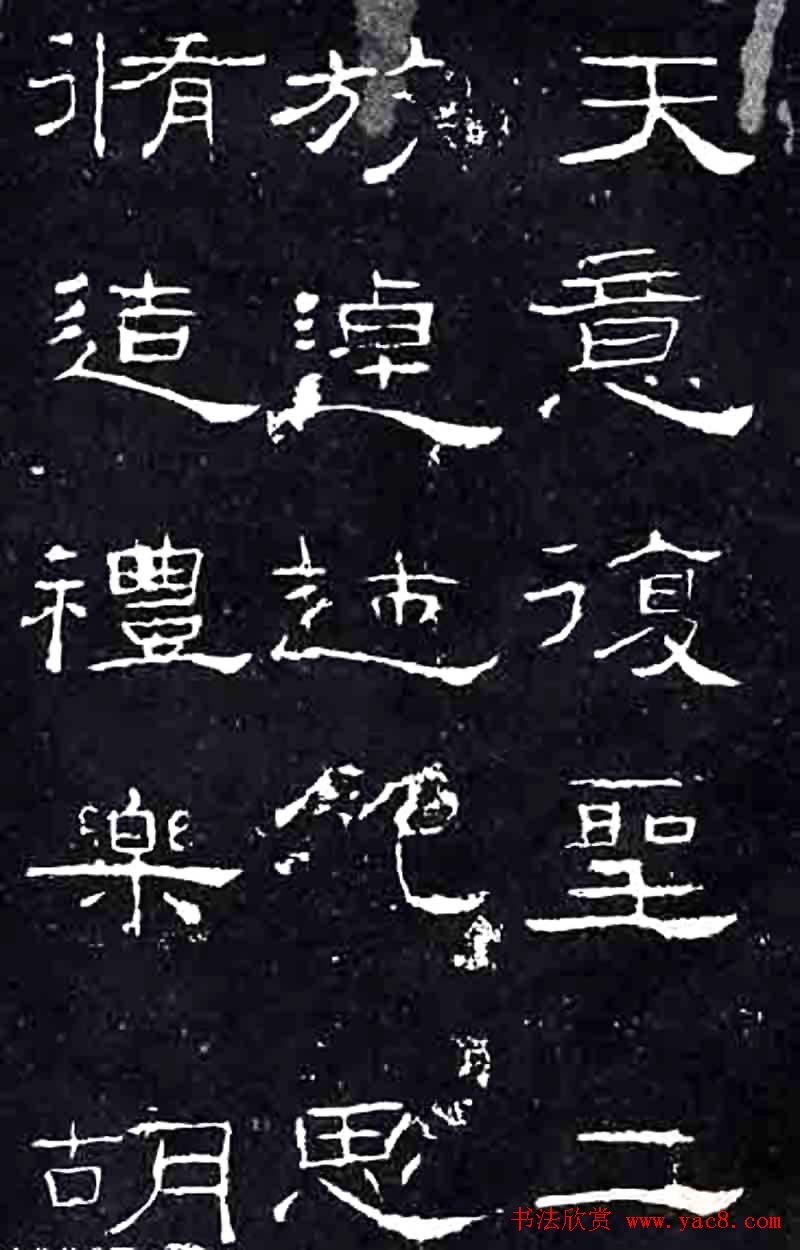 天意復聖二
族逴越絶思
脩造禮樂胡
书法欣赏 www.yac8.com